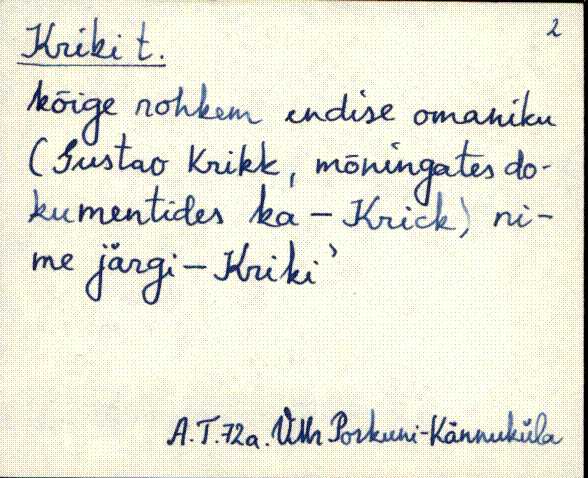 2
Kriki t.
kõige rohkem endise omaniku
(Gustav Krikk, mõningates do-
kumentides ka – Krick) ni-
me järgi – Kriki'
A.T.72a. VMr Porkuni-Kännuküla